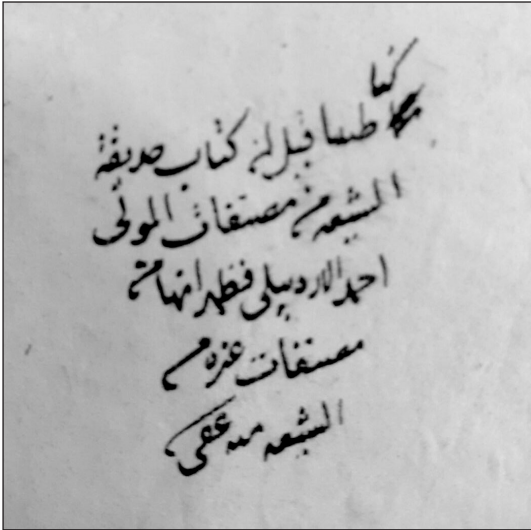 كنا
طبعا قبل ان كتاب حديقة
الشيعة من مصنفات المولى
احمد الاردبيلي فظهر انها من
مصنفات غيره من
الشيعة منه عفى